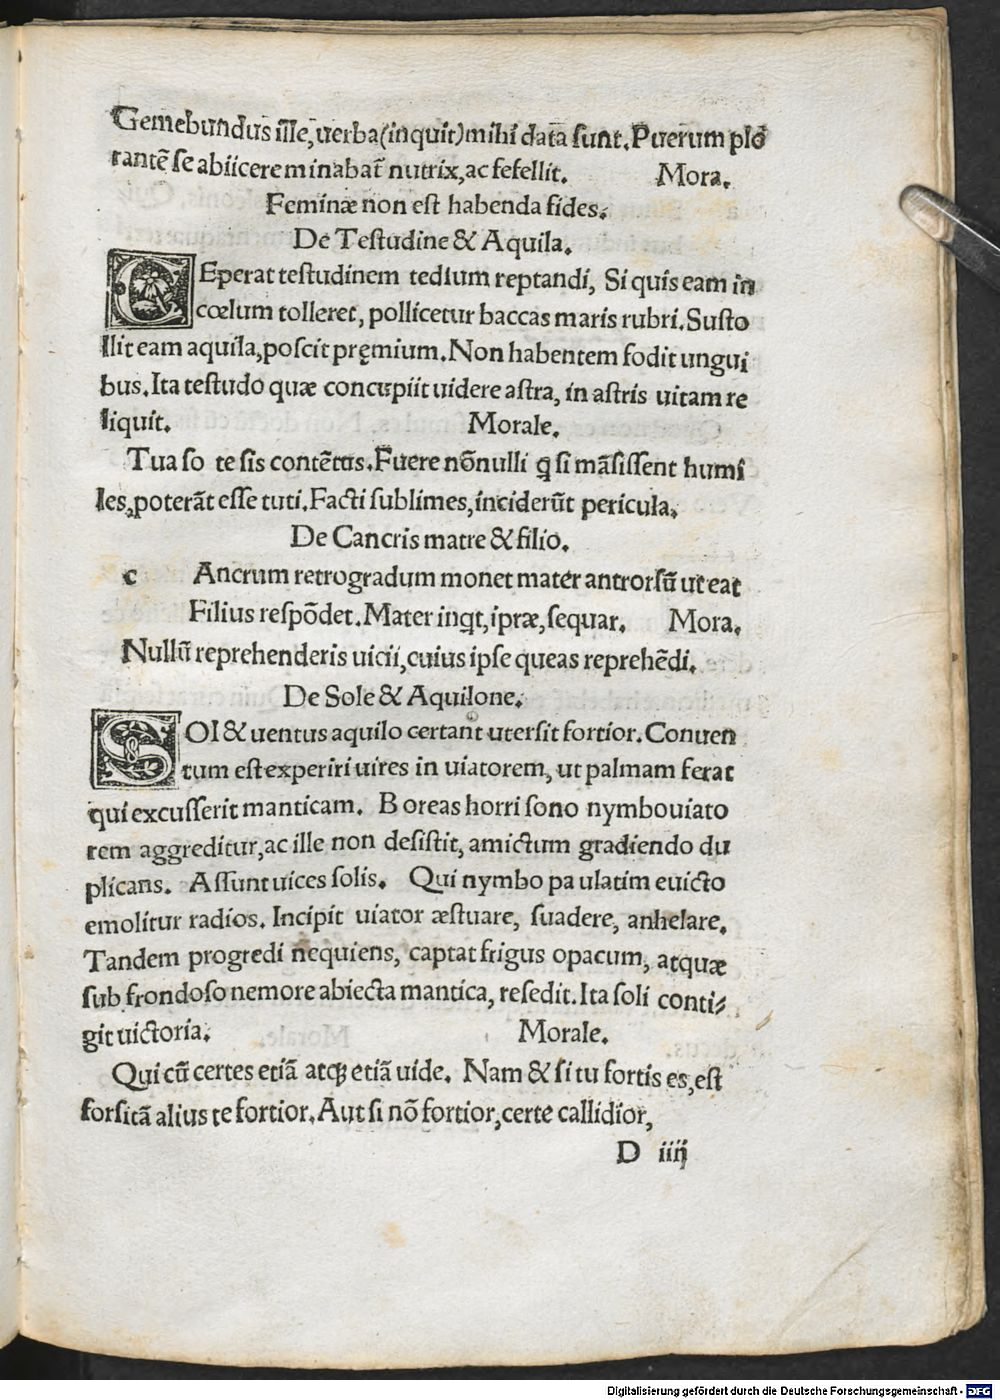 Gemebundus ille, uerba(inquit)mihi data sunt. Puerum plō
rantē se abiicere minabat̄ nutrix, ac fefellit. Mora.
Feminæ non est habenda fides.
De Testudine & Aquila.
CEperat testudinem tedium reptandi, Si quis eam in
cœlum tolleret, pollicetur baccas maris rubri. Susto
llit eam aquila, poscit pręmium. Non habentem fodit ungui
bus. Ita testudo quæ concupiit uidere astra, in astris uitam re
liquit. Morale.
Tua so te sis contētus. Fuere nōnulli ꝗ si māsissent humi
les, poterāt esse tuti. Facti sublimes, inciderūt pericula.
De Cancris matre & filio.
c Ancrum retrogradum monet mater antrorsū ut eat
Filius respōdet. Mater inꝗt, i præ, sequar. Mora.
Nullū reprehenderis uicii, cuius ipse queas reprehēdi.
De Sole & Aquilone.
SOl & uentus aquilo certant uter sit fortior. Conuen
tum est experiri uires in uiatorem, ut palmam ferat
qui excusserit manticam. B oreas horri sono nymbo uiato
rem aggreditur, ac ille non desistit, amictum gradiendo du
plicans. Assunt uices solis. Qui nymbo pa ulatim euicto
emolitur radios. Incipit uiator æstuare, suadere, anhelare.
Tandem progredi nequiens, captat frigus opacum, atquæ
sub frondoso nemore abiecta mantica, resedit. Ita soli conti⸗
git uictoria. Morale.
Qui cū certes etiā atqꝫ etiā uide. Nam & si tu fortis es, est
forsitā alius te fortior. Aut si nō fortior, certe callidior,
D iiij
Digitalisierung gefördert durch die Deutsche Forschungsgemeinschaft - DFG